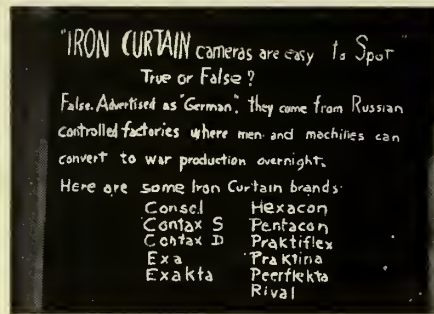 "IRON CURTAIN cameras are easy to Spot"
True or False?
False. Advertised as "German", they come from Russian
controlled factories where men and machines can
convert to war production overnight.
Here are some Iron Curtain brands.
Consol Hexacon
Contax S Pentacon
Contax D Praktiflex
Exa Praktina
Exakta Peerflekta
Rival